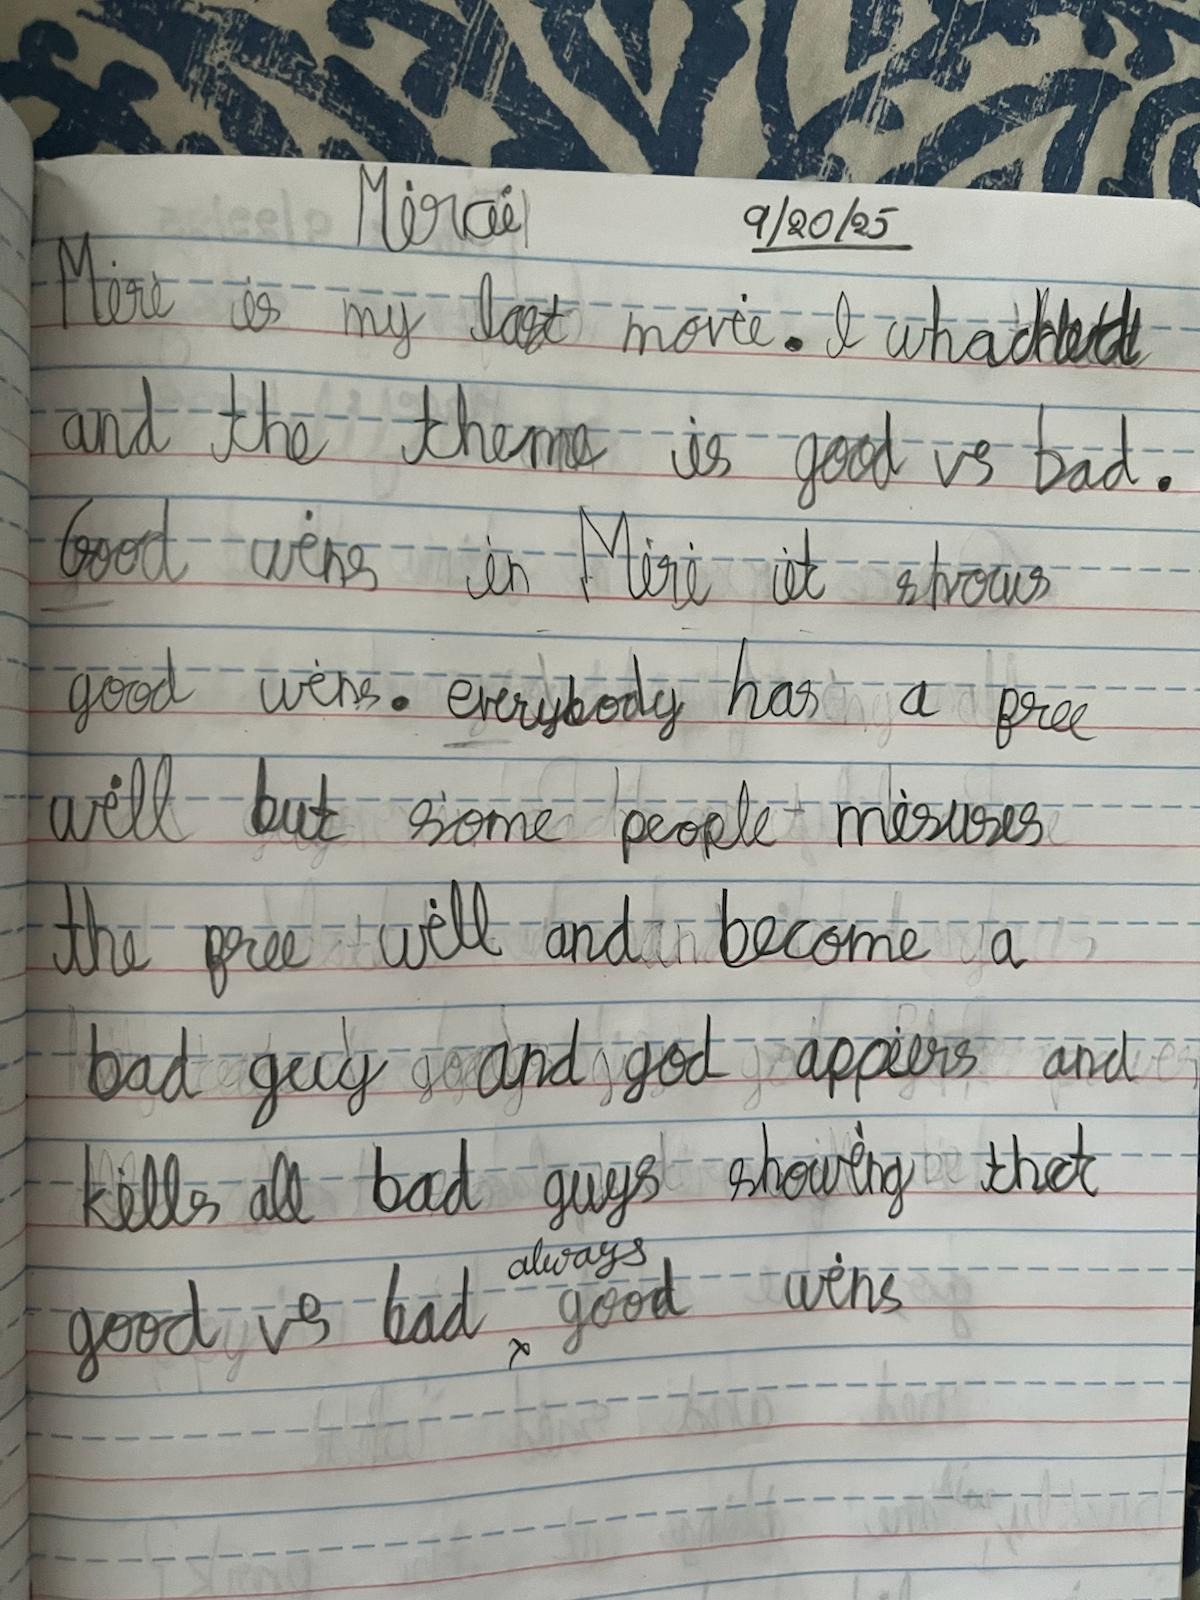 Mirai 9/20/25
Miri is my last movie. I whached
and the theme is good vs bad.
Good wins in Miri it shows
good wins. everybody has a free
will but some people misuses
the free will and become a
bad guy and god appiers and
kills all bad guys showing that
always
good vs bad good wins